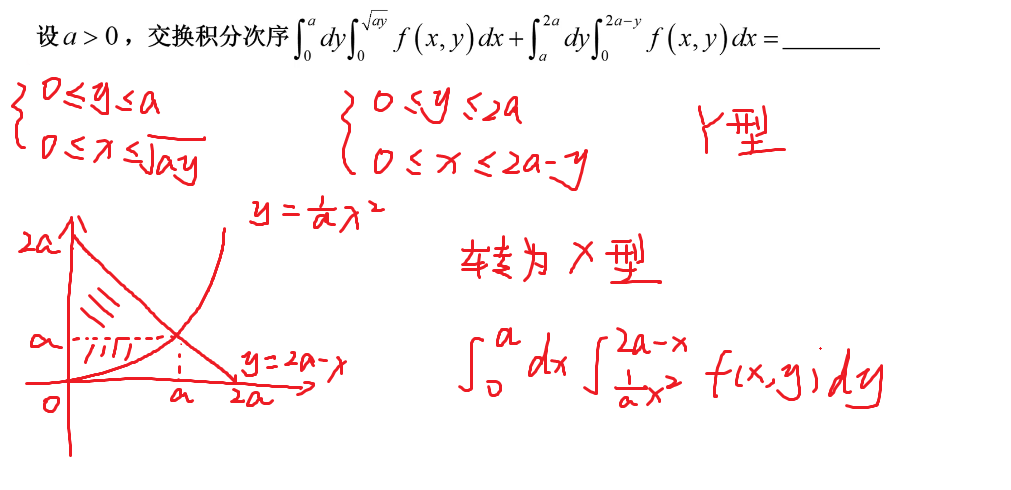 设 a > 0，交换积分次序 ∫₀ᵃ dy ∫₀^√(ay) f(x, y) dx + ∫ₐ²ᵃ dy ∫₀²ᵃ⁻ʸ f(x, y) dx = ________
{ 0 ≤ y ≤ a
0 ≤ x ≤ √(ay)
{ 0 ≤ y ≤ 2a
0 ≤ x ≤ 2a-y
Y型
y = 1/a x²
2a
a
y = 2a-x
0
a
2a
转为 X型
∫₀ᵃ dx ∫_(1/a x²)^(2a-x) f(x, y) dy